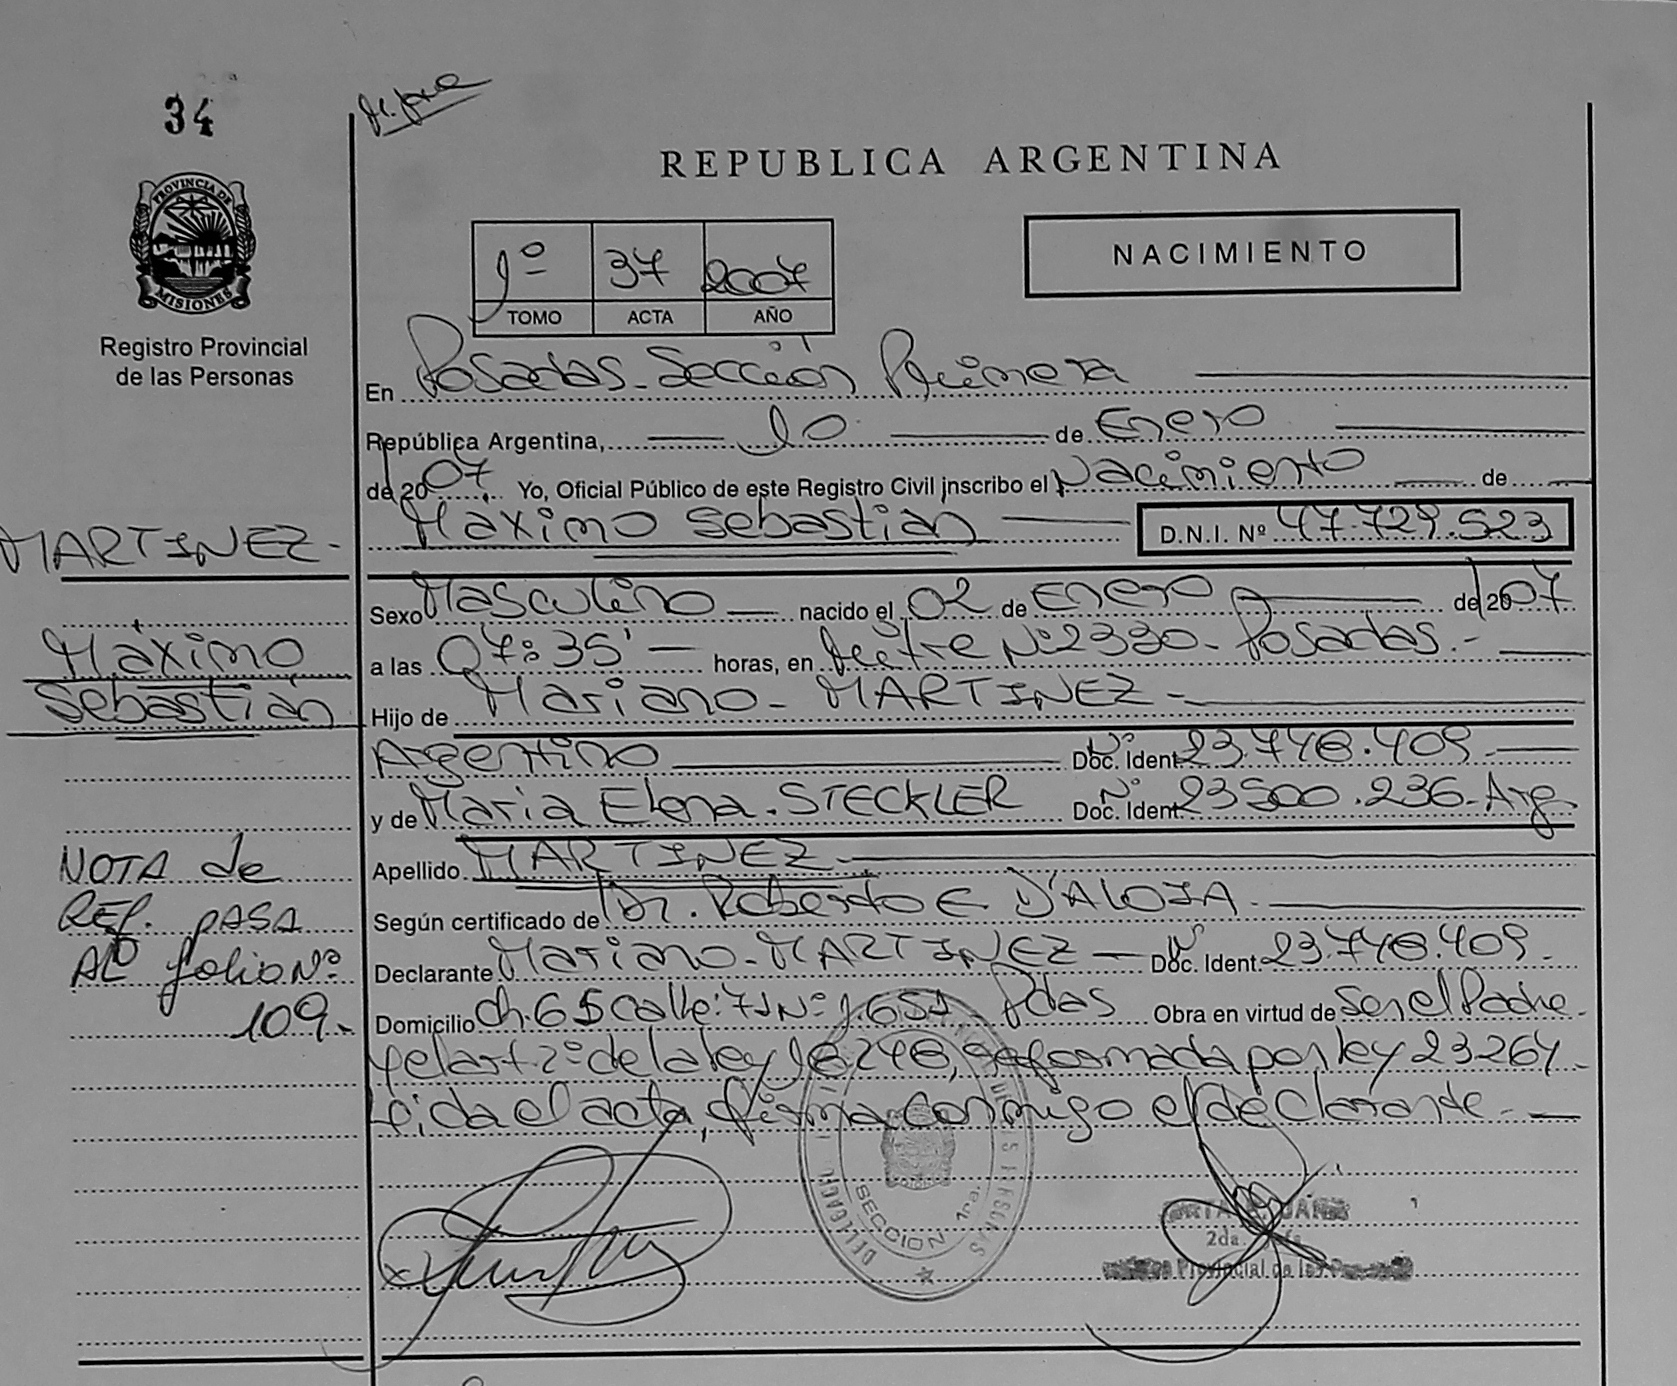 34
REPUBLICA ARGENTINA
PROVINCIA DE
MISIONES
Registro Provincial
de las Personas
1º 37 2007
TOMO ACTA AÑO
NACIMIENTO
En Posadas - Sección Primera
República Argentina, 10 de Enero
del 2007. Yo, Oficial Público de este Registro Civil inscribo el Nacimiento de
Máximo Sebastián D.N.I. Nº 47.729.523
MARTINEZ.-
Máximo
Sebastián
Sexo Masculino nacido el 02 de Enero del 2007
a las 07:35' horas, en Mitre Nº 2330 - Posadas.-
Hijo de Mariano - MARTINEZ -
Argentino Doc. Ident. Nº 23.748.409
y de Maria Elena. STECKLER Doc. Ident. Nº 23500.236-Arg.
Apellido MARTINEZ.
Según certificado de Dr. Roberto E D'ALOIA.
Declarante Mariano - MARTINEZ - Doc. Ident. Nº 23.748.409.
Domicilio Ch. 65 Calle: 71 Nº 1.651 Pdas Obra en virtud de Ser el Padre
y el art. 2º de la ley 18248, reformada por ley 23264.-
Leida el acta, firma conmigo el declarante.-
NOTA de
REF. PASA
AL folio Nº
109.-
SECCION 1ra.
2da.
Provincial de las